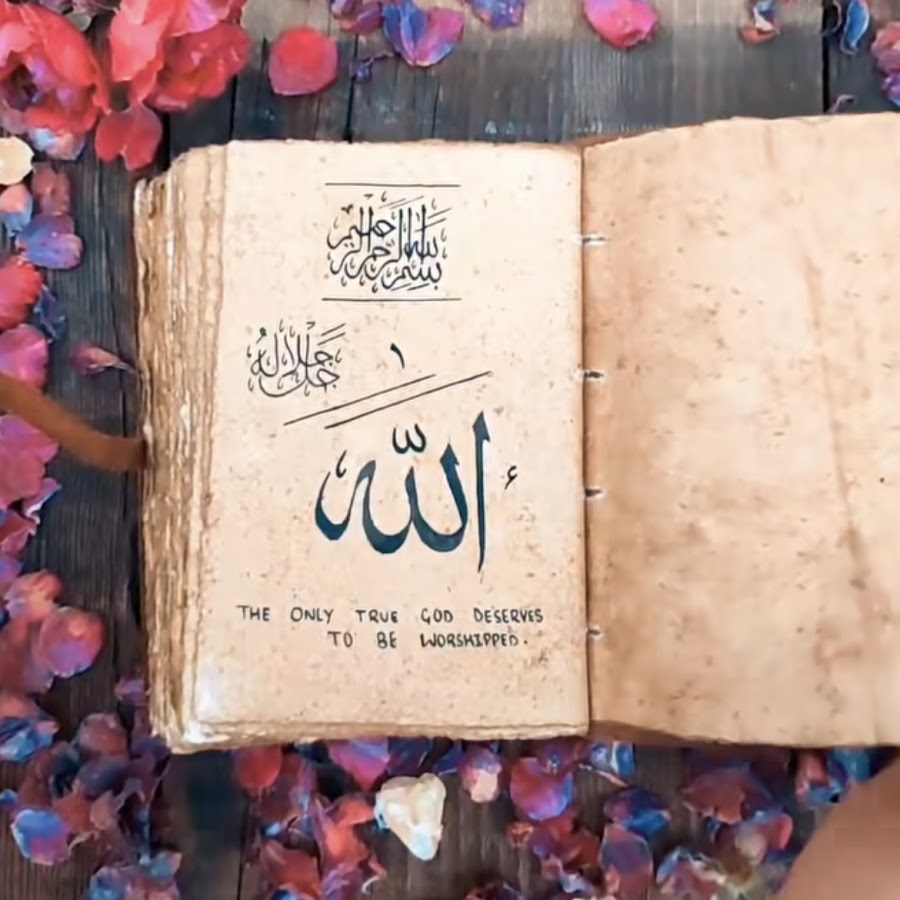 بسم الله الرحمن الرحيم
جل جلاله
١
الله
THE ONLY TRUE GOD DESERVES
TO BE WORSHIPPED.